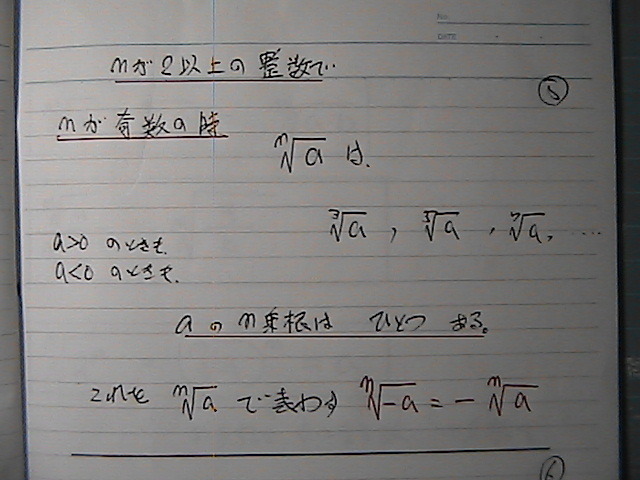 No.
DATE
nが2以上の整数で
⑤
nが奇数の時
ⁿ√a は、
³√a , ⁵√a , ⁷√a, ····
a>0 のときも
a<0 のときも、
aのn乗根は ひとつ ある。
これを ⁿ√a で表わす ⁿ√-a = - ⁿ√a
⑥